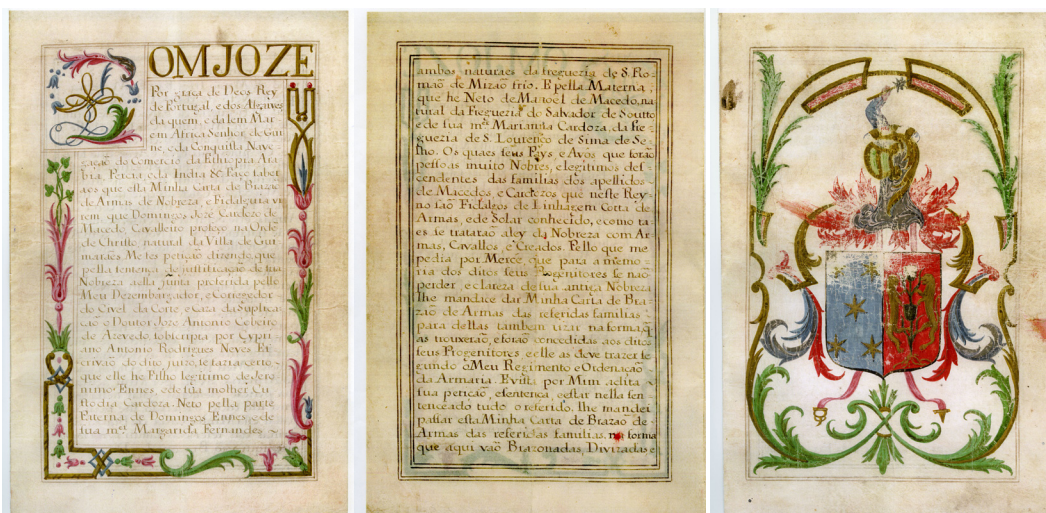 DOM JOZE
Por graça de Deos Rey
de Portugal, e dos Algarves
da quem, e da lem Mar
em Africa Senhor de Gui
ne, e da Conquista Nave-
gação do Comercio da Ethiopia Ara
bia, Percia, e da India &c Faço saber
aos que esta Minha Carta de Brazão
de Armas de Nobreza, e Fidalguia vi
rem que Domingos Jozé Cardozo de
Macedo Cavalleiro profeço na Ordẽ
de Christo natural da Villa de Gui
marães Me fes petição dizendo que
pella sentença de justificação de sua
Nobreza a ella junta proferida pello
Meu Dezembargador, e Coriegedor
do Civel da Corte, e Caza da Suplica
ção o Doutor Joze Antonio
de Azevedo sobscripta por Cypri
ano Antonio Rodrigues Neves Es
crivão do dito juizo, se fazia certo
que elle he Filho legitimo de Jero
nimo Ennes, e de sua molher Cus
todia Cardoza. Neto pella parte
Paterna de Domingos Ennes, e de
sua m.er Margarida Fernandes
ambos naturaes da freguezia de S. Ro-
mão de Mizão frio. E pella Materna
que he Neto de Manoel de Macedo, na
tural da Freguezia do Salvador de Soutto
e de sua m.er Marianna Cardoza, da fre-
guezia de S. Lourenço de Sima de Se-
lho. Os quaes seus Pays, e Avós que forão
pessoas muito Nobres, e legitimos des-
cendentes das familias dos apellidos
de Macedos, e Cardozos que neste Rey-
no são Fidalgos de Linhagem Cotta de
Armas, e de Solar conhecido, e como ta
es se tratarão a ley da Nobreza com Ar-
mas, Cavallos, e Creados. Pello que me
pedia por Mercê que para a memo-
ria dos ditos seus Progenitores se não
perder, e clareza de sua antiga Nobreza
lhe mandace dar Minha Carta de Bra-
zão de Armas das referidas familias
para dellas tambem uzar na forma, q̃
as trouxerão, e forão concedidas aos ditos
seus Progenitores, e elle as deve trazer se
gundo o Meu Regimento e Ordenação
da Armaria. E vista por Mim a dita
sua petição, e sentença, e estar nella sen
tenceado tudo o referido, lhe mandei
passar esta Minha Carta de Brazão de
Armas das referidas familias, na forma
que aqui vão Brazonadas, Divizadas e